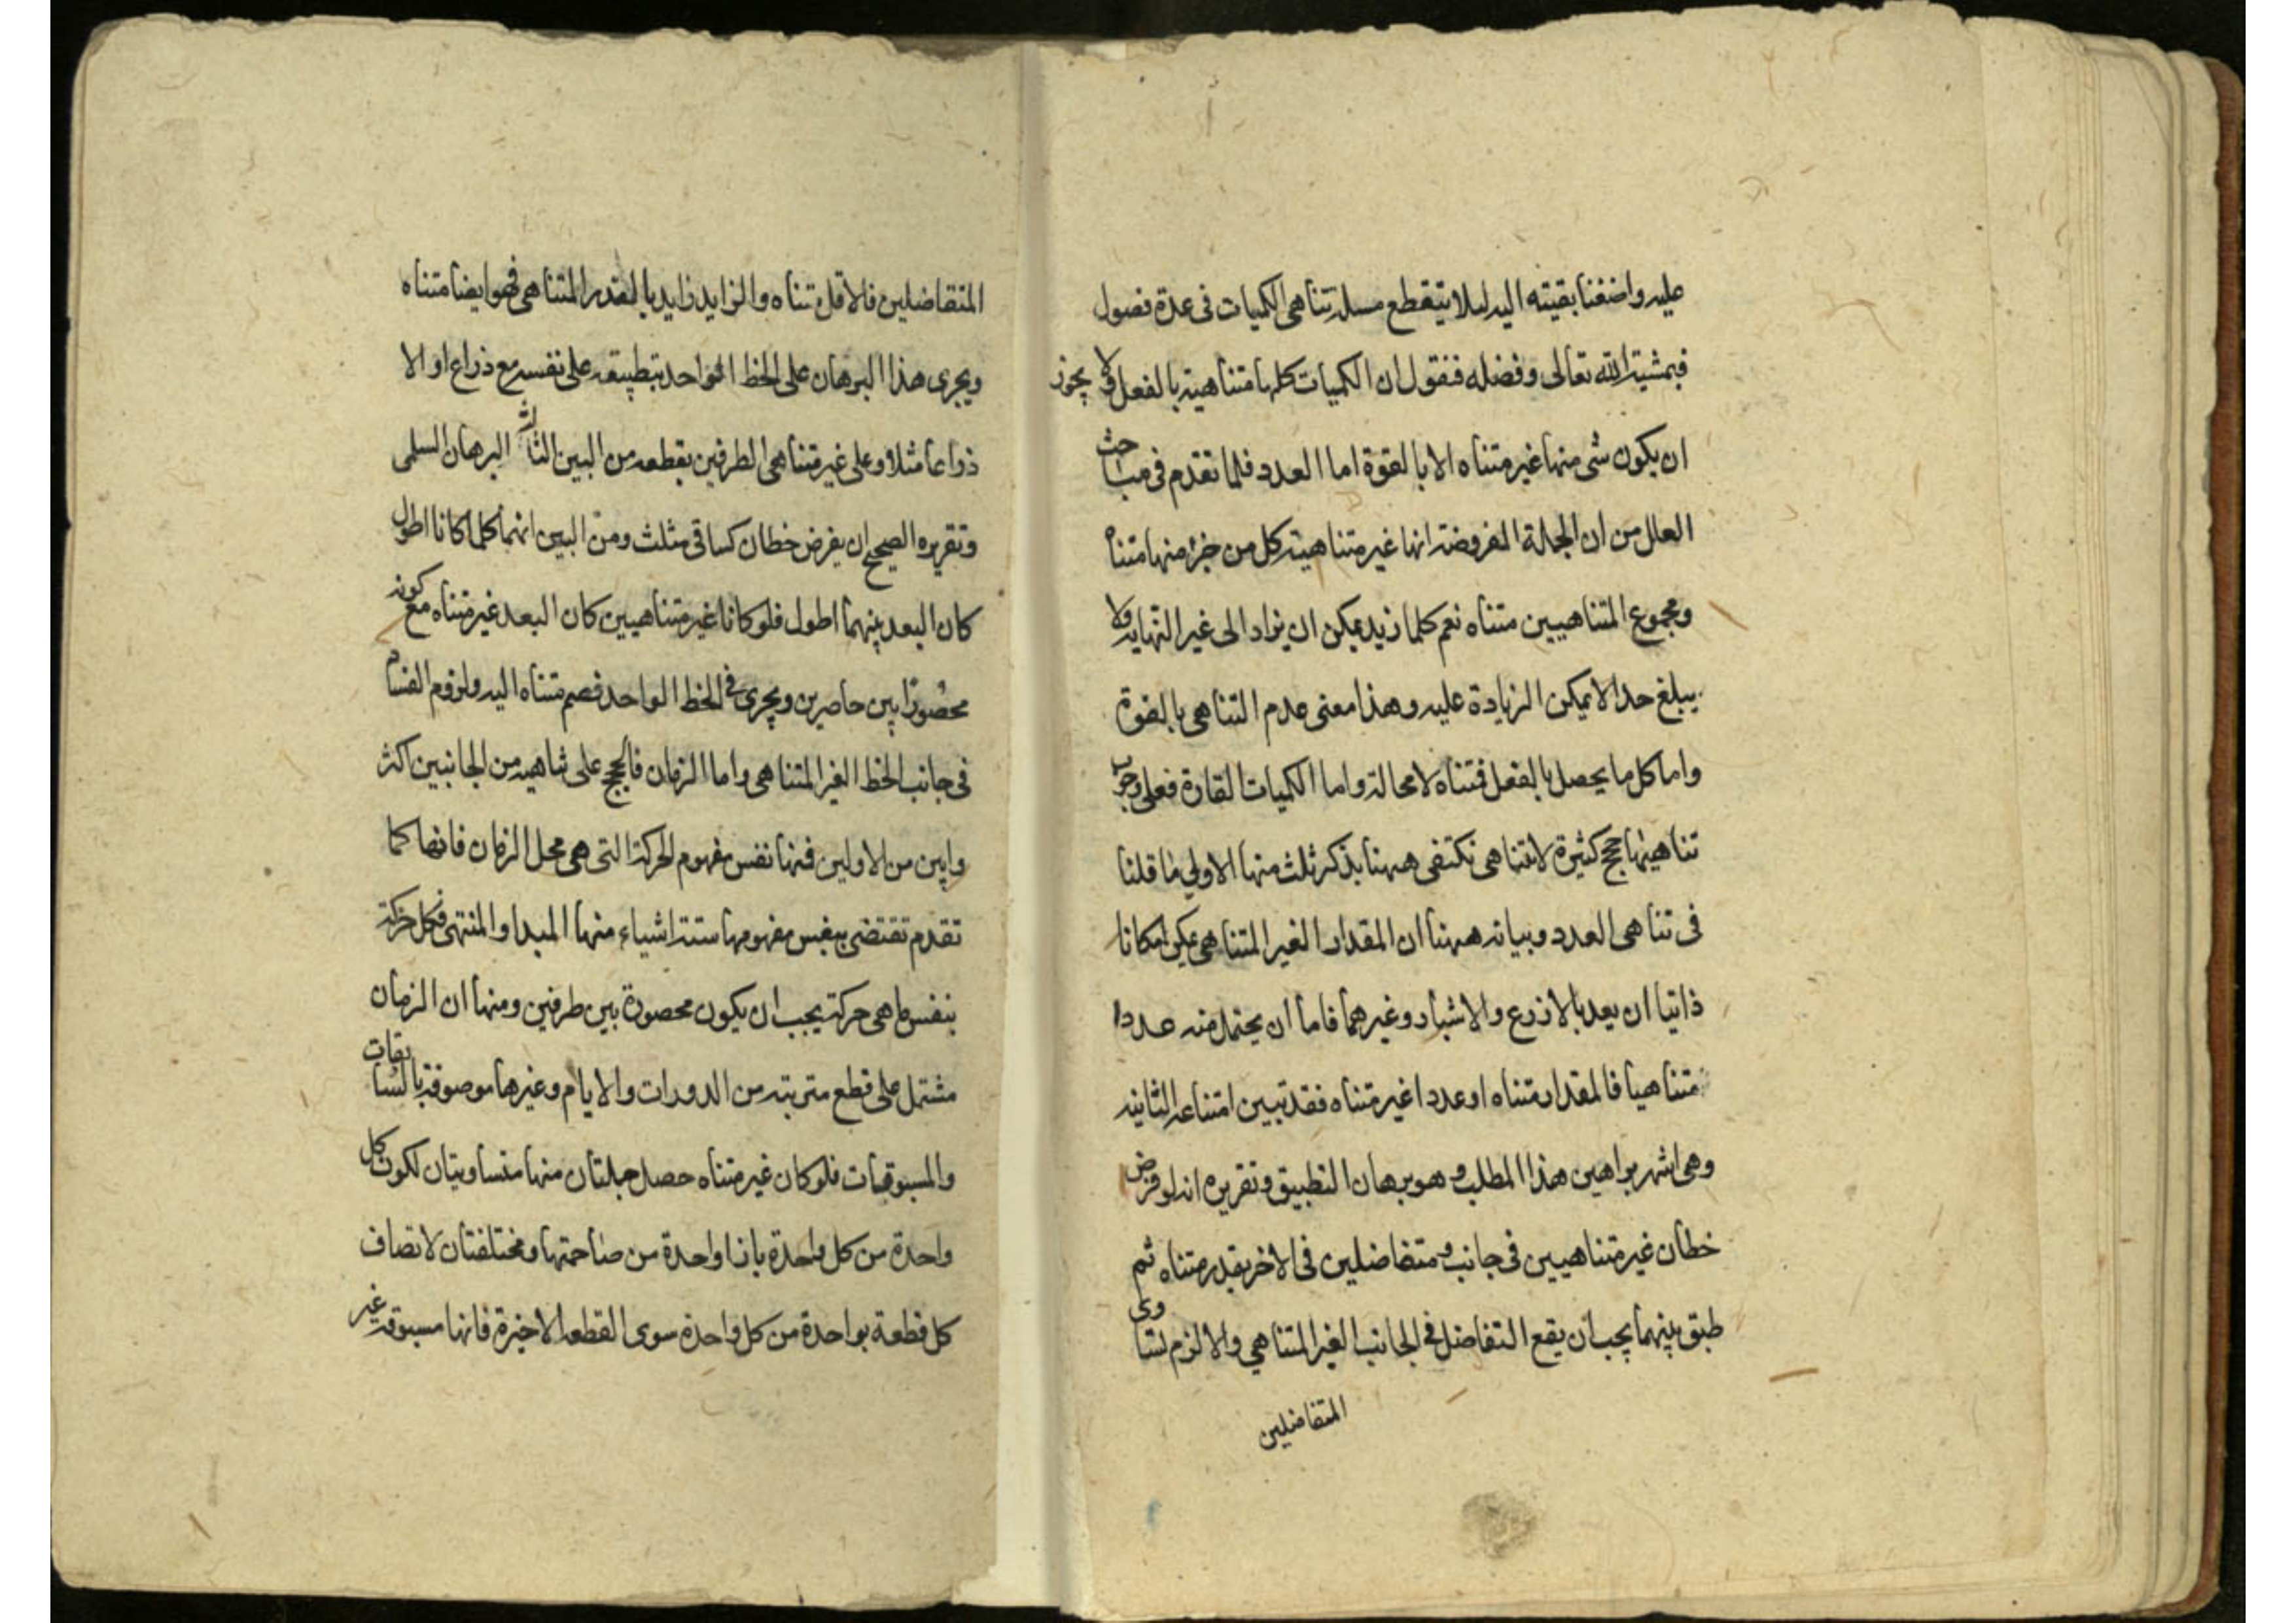 عليه واضفنا بقيته اليه لئلا يتقطع مسلة تناهى الكميات فى عدة فصول
فبمشية الله تعالى وفضله فنقول ان الكميات كلها متناهية بالفعل ولا يجوز
ان يكون شى منها غير متناه الا بالقوة اما العدد فلما تقدم فى مباحث
العلل من ان الجملة المفروضة انها غير متناهية كل من جزء منها متناه
ومجموع المتناهيين متناه نعم كلما زيد يمكن ان يزاد الى غير النهاية ولا
يبلغ حدا لا يمكن الزيادة عليه وهذا معنى عدم التناهى بالقوة
واما كل ما يحصل بالفعل فمتناه لا محالة واما الكميات القارة فعلى وجوب
تناهيها حجج كثيرة لا تتناهى نكتفى ههنا بذكر ثلث منها الاولى ما قلنا
فى تناهى العدد وبيانه ههنا ان المقدار الغير المتناهى يمكن امكانا
ذاتيا ان يعد بالاذرع والاشبار وغيرهما فاما ان يحتمل منه عددا
متناهيا فالمقدار متناه او عددا غير متناه فقد تبين امتناعه الثانية
وهى اشهر براهين هذا المطلب وهو برهان التطبيق وتقريره انه لو فرض
خطان غير متناهيين فى جانب ومتفاضلين فى الاخر بقدر متناه ثم
طبق بينهما يجب ان يقع التفاضل فى الجانب الغير المتناهي والا لزم تساوى
المتفاضلين
المتفاضلين فالاقل متناه والزايد زايد بالقدر المتناهى فهو ايضا متناه
ويجرى هذا البرهان على الخط الواحد بتطبيقه على نفسه مع ذراع او الا
ذراعا مثلا وعلى غير متناهى الطرفين بقطعه من البين الثالث البرهان السلمى
وتقريره الصحيح ان يفرض خطان كساقى مثلث ومن البين انهما كلما كانا اطول
كان البعد بينهما اطول فلو كانا غير متناهيين كان البعد غير متناه مع كونه
محصورا بين حاصرين ويجرى فى الخط الواحد فصم متناه اليه ولزوم الفساد
فى جانب الخط الغير المتناهى واما الزمان فالحجج على تناهيه من الجانبين اكثر
وابين من الاولين فمنها نفس مفهوم الحركة التى هى محل الزمان فانها كما
تقدم تقتضى بنفس مفهومها ستة اشياء منها المبدا والمنتهى فكل حركة
بنفس ما هى حركة يجب ان يكون محصورة بين طرفين ومنها ان الزمان
مشتمل على قطع مترتبه من الدورات والايام وغيرها موصوفة بالسابقات
والمسبوقيات فلو كان غير متناه حصل جملتان منها متساويتان لكون كل
واحدة من كل واحدة بازا واحدة من صاحبتها ومختلفتان لاتصاف
كل قطعة بواحدة من كل واحدة سوى القطعه الاخيرة فانها مسبوقة غير